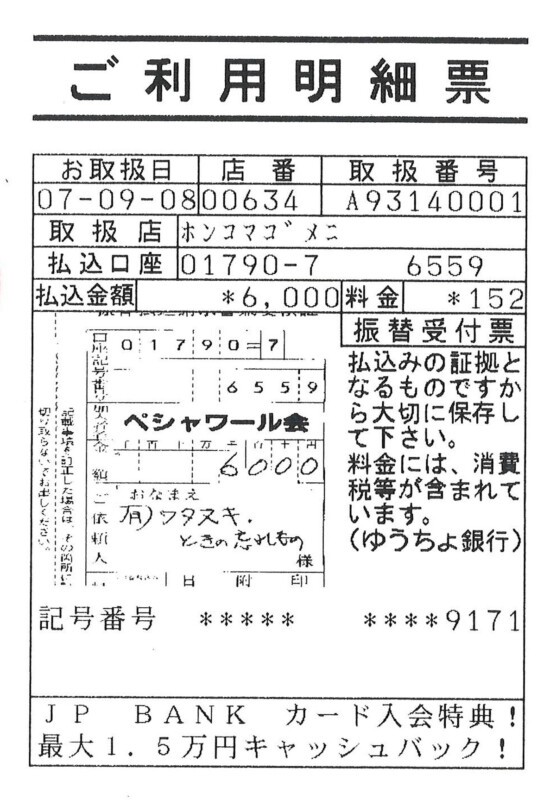 ご利用明細票
お取扱日 店番 取扱番号
07-09-08 00634 A93140001
取扱店 ホンコマゴメニ
払込口座 01790-7 6559
払込金額 *6,000 料金 *152
振替受付票
口座記号番号 01790=7
6559
ペシャワール会
千百十万千百十円
金額 6000
おなまえ
ご依頼人
(有)ワタヌキ.
ときの忘れもの
様
日附印
記載事項を訂正した場合は、その箇所に
切り取らないでお出しください。
払込みの証拠と
なるものですか
ら大切に保存し
て下さい。
料金には、消費
税等が含まれて
います。
(ゆうちょ銀行)
記号番号 ***** ****9171
JP BANK カード入会特典!
最大1.5万円キャッシュバック!